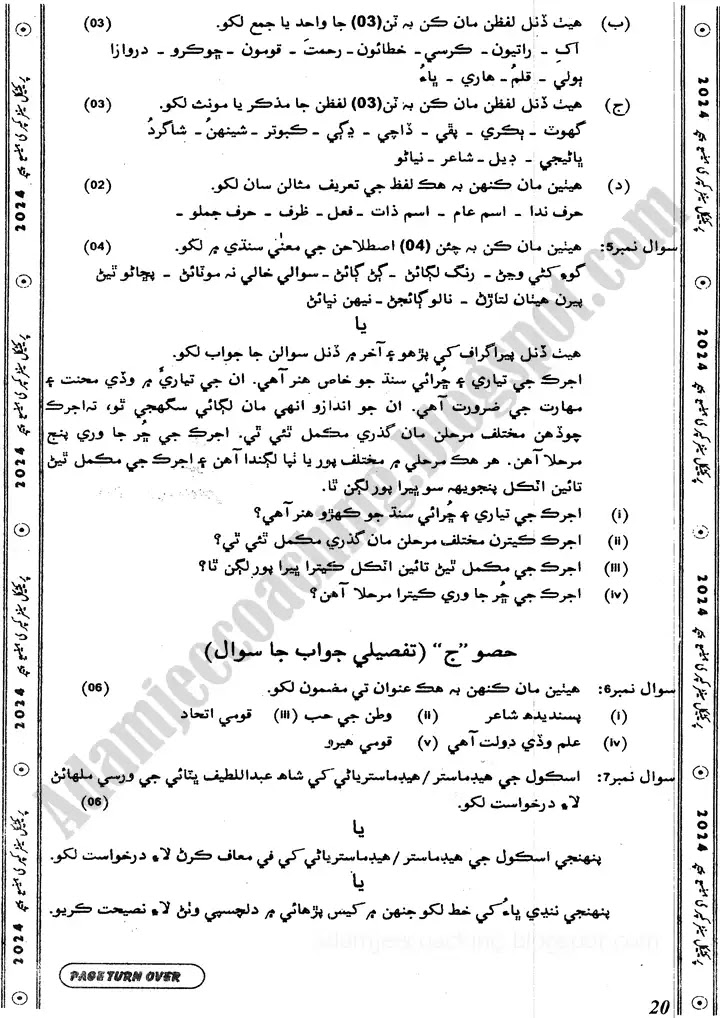 (ب) هيٺ ڏنل لفظن مان ڪن به ٽن(03) جا واحد يا جمع لکو. (03)
اک - راتيون - ڪرسي - خطائون - رحمت - قومون - ڇوڪرو - دروازا
ٻولي - قلمُ - هاري - ڀاءُ
(ج) هيٺ ڏنل لفظن مان ڪن به ٽن(03) لفظن جا مذڪر يا مونث لکو. (03)
گهوٽ - ٻڪري - پڦي - ڏاچي - ڍڳي - ڪبوتر - شينهنُ - شاگردُ
ڀاڻيجي - ڊيل - شاعر - نياڻو
(د) هيٺين مان ڪنهن به هڪ لفظ جي تعريف مثالن سان لکو. (02)
حرف ندا - اسم عام - اسم ذات - فعل - ظرف - حرف جملو -
سوال نمبر5: هيٺين مان ڪن به چئن (04) اصطلاحن جي معنيٰ سنڌي ۾ لکو. (04)
گوءِ کڻي وڃڻ - رنگ لڳائڻ - ڳڻ ڳائڻ - سوالي خالي نہ موٽائڻ - پڄاڻو ٿيڻ
پيرن هيٺان لتاڙڻ - نالو ڳائجڻ - نيهن نڀائڻ
يا
هيٺ ڏنل پيراگراف کي پڙهو ۽ آخر ۾ ڏنل سوالن جا جواب لکو.
اجرڪ جي تياري ۽ ڇُرائي سنڌ جو خاص هنر آهي. ان جي تياريءَ ۾ وڏي محنت ۽
مهارت جي ضرورت آهي. ان جو اندازو انهي مان لڳائي سگهجي ٿو، تہ اجرڪ
چوڏهن مختلف مرحلن مان گذري مڪمل ٿئي ٿي. اجرڪ جي ڇُر جا وري پنج
مرحلا آهن. هر هڪ مرحلي ۾ مختلف پور يا ٺپا لڳندا آهن ۽ اجرڪ جي مڪمل ٿيڻ
تائين اٽڪل پنجويهہ سو ڀيرا پور لڳن ٿا.
(i) اجرڪ جي تياري ۽ ڇُرائي سنڌ جو ڪهڙو هنر آهي؟
(ii) اجرڪ ڪيترن مختلف مرحلن مان گذري مڪمل ٿئي ٿي؟
(iii) اجرڪ جي مڪمل ٿيڻ تائين اٽڪل ڪيترا ڀيرا پور لڳن ٿا؟
(iv) اجرڪ جي ڇُر جا وري ڪيترا مرحلا آهن؟
حصو "ج" (تفصيلي جواب جا سوال)
سوال نمبر6: هيٺين مان ڪنهن به هڪ عنوان تي مضمون لکو. (06)
(i) پسنديده شاعر (ii) وطن جي حب (iii) قومي اتحاد
(iv) علم وڏي دولت آهي (v) قومي هيرو
سوال نمبر7: اسڪول جي هيڊماستر/هيڊماسترياڻي کي شاھ عبداللطيف ڀٽائي جي ورسي ملهائڻ
لاءِ درخواست لکو. (06)
يا
پنهنجي اسڪول جي هيڊماستر/هيڊماسترياڻي کي في معاف ڪرڻ لاءِ درخواست لکو.
يا
پنهنجي ننڍي ڀاءُ کي خط لکو جنهن ۾ کيس پڙهائي ۾ دلچسپي وٺڻ لاءِ نصيحت ڪريو.
PAGE TURN OVER
20
2024
2024
2024
2024
2024
2024
2024
2024
Adamjeecoaching.blogspot.com
adamjeecoaching.blogspot.com